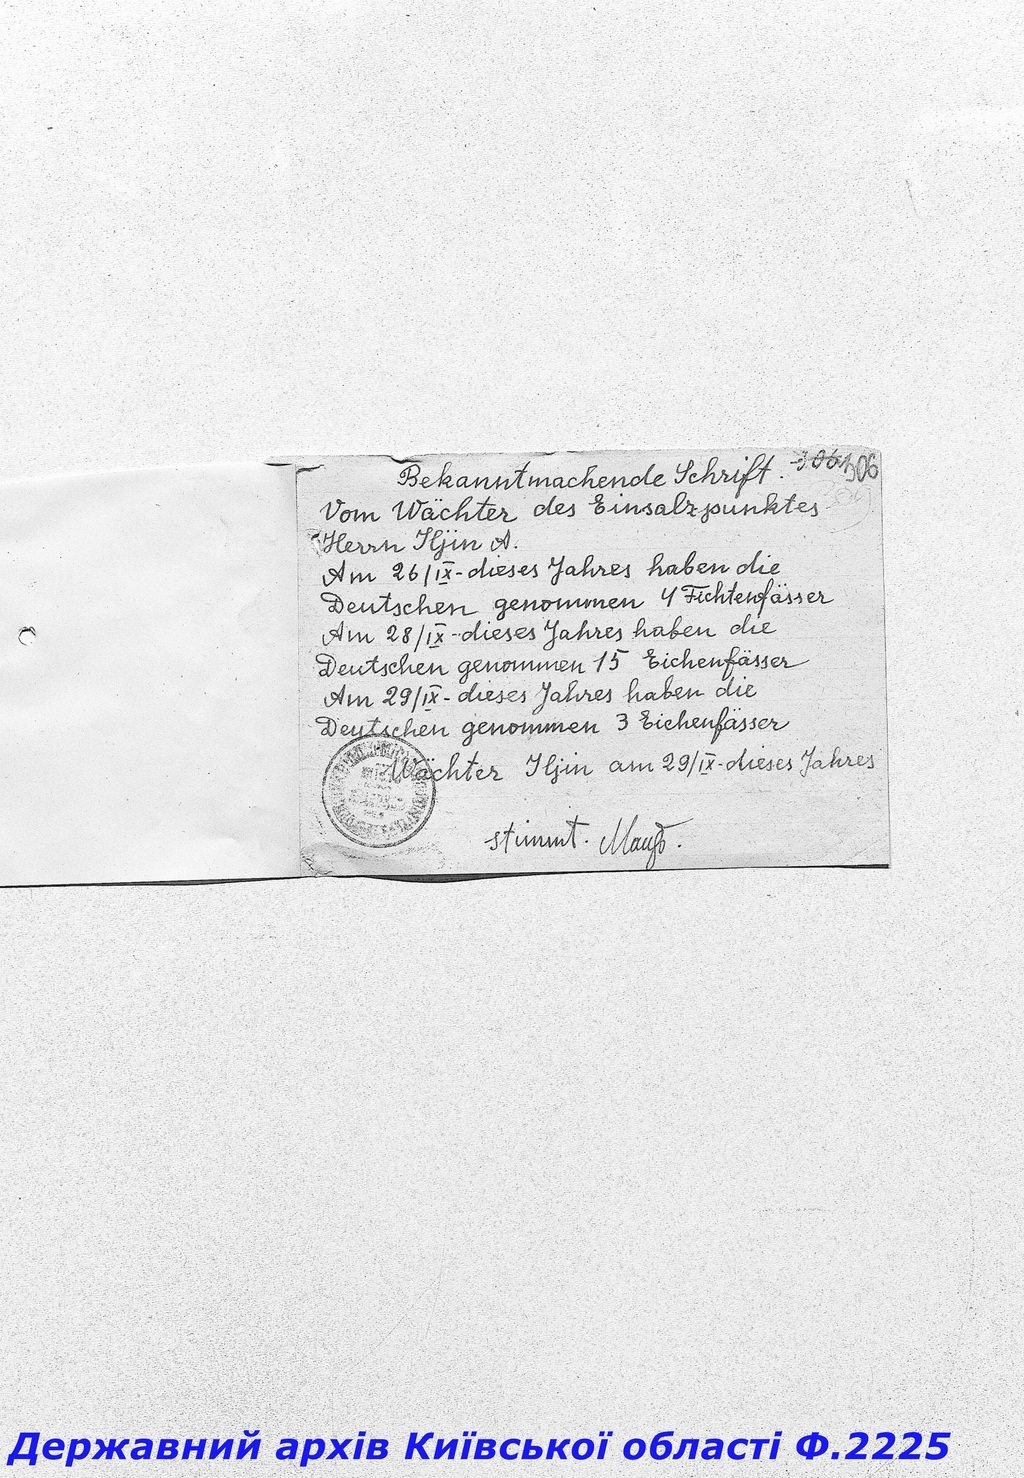 Bekanntmachende Schrift.
306
Vom Wächter des Einsalzpunktes
Herrn Iljin A.
Am 26/IX-dieses Jahres haben die
Deutschen genommen 4 Fichtenfässer
Am 28/IX-dieses Jahres haben die
Deutschen genommen 15 Eichenfässer
Am 29/IX-dieses Jahres haben die
Deutschen genommen 3 Eichenfässer
Wächter Iljin am 29/IX-dieses Jahres
stimmt.
Державний архів Київської області Ф.2225